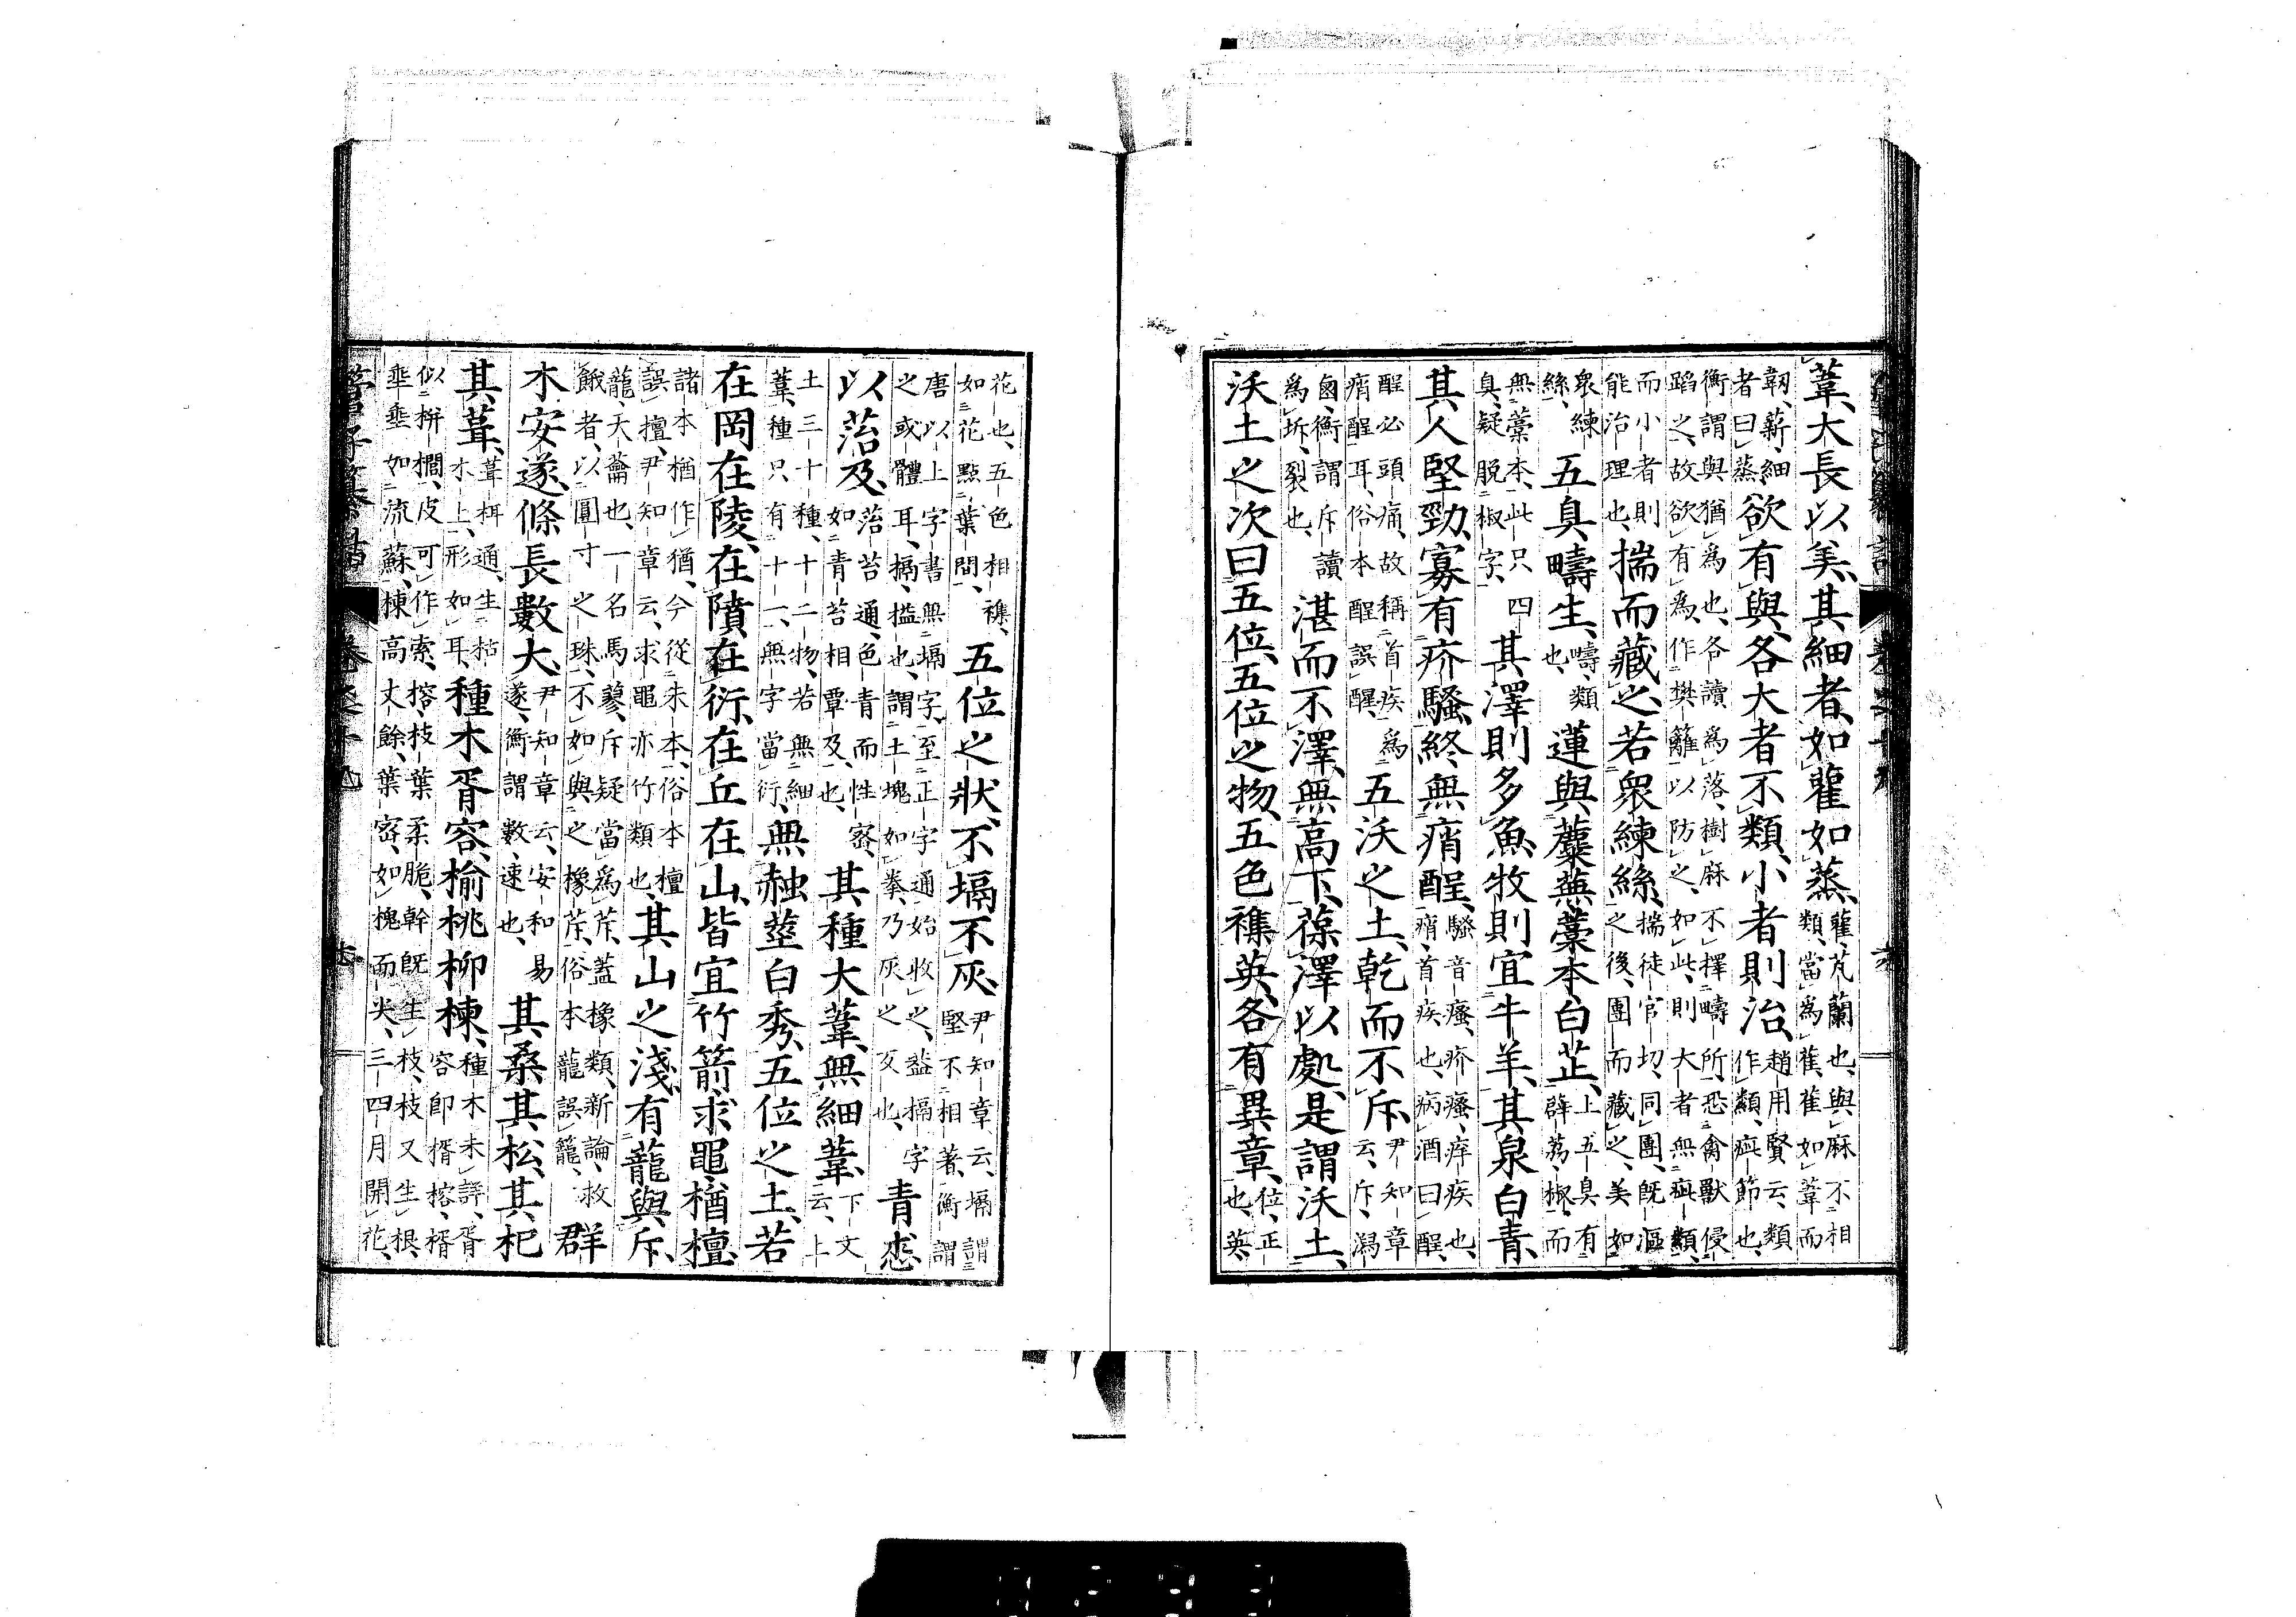 葦、大長以美、其細者、如雚如蒸、雚、芃蘭也、與麻不相類、當爲萑、萑如葦而
韌、薪、細者曰蒸、欲有與各、大者不類、小者則治、趙用賢云、類作纇、疵節也、
衡謂與猶爲也、各讀爲落、樹麻不擇疇所、恐禽獸侵蹈之、故欲有爲作樊籬以防之、如此、則大者無疵纇、
而小者則能治理也、揣而藏之、若衆練絲、揣徒官切、同團、既漚之後、團而藏之、美如
衆練絲、五臭疇生、疇、類也、蓮與蘪蕪、藁本、白芷、上五臭有薜荔、椒、而
無藁本、此只四臭、疑脫椒字、其澤則多魚、牧則宜牛羊、其泉白青、
其人堅勁、寡有疥騷、終無痟酲、騷音瘙、疥瘙、痒疾也、痟、首疾也、病酒曰酲、
酲必頭痛、故稱首疾爲痟酲耳、俗本酲誤醒、五沃之土、乾而不斥、尹知章云、斥、潟
鹵、衡謂斥讀爲坼、裂也、湛而不澤、無高下、葆澤以處、是謂沃土、
沃土之次、曰五位、五位之物、五色襍英、各有異章、位、正也、英、
花也、五色相襍、如花點葉間、五位之狀、不塥不灰、尹知章云、塥謂堅不相著、衡謂
唐以上字書無塥字、至正字通始收之、蓋搹字之或體耳、搹、搤也、謂土塊如拳、乃灰之反也、青怸
以菭及、菭苔通、色青而性密、如青苔相覃及也、其種大葦無細葦無、下文云、上
土三十種、十二物、若無細葦、種只有十一、無字當衍、無赨莖白秀、五位之土、若
在岡在陵、在隫在衍、在丘在山、皆宜竹箭求黽楢檀、
諸本楢作猶、今從朱本、俗本檀誤擅、尹知章云、求黽亦竹類也、其山之淺、有蘢與斥、
蘢、天蘥也、一名馬蓼、斥疑當爲芧、蓋橡類、新論、救餓者、以圓寸之珠、不如與之橡芧、俗本蘢誤籠、群
木安遂、條長數大、尹知章云、安和易遂、衡謂數、速也、其桑其松、其杞
其葺、葺栮通、生枯木上、形如耳、種木胥容、榆桃柳楝、種木未詳、胥容卽楈榕、楈
似栟櫚、皮可作索、榕、枝葉柔脆、幹既生枝、枝又生根、垂垂如流蘇、楝高丈餘、葉密、如槐而尖、三四月開花、